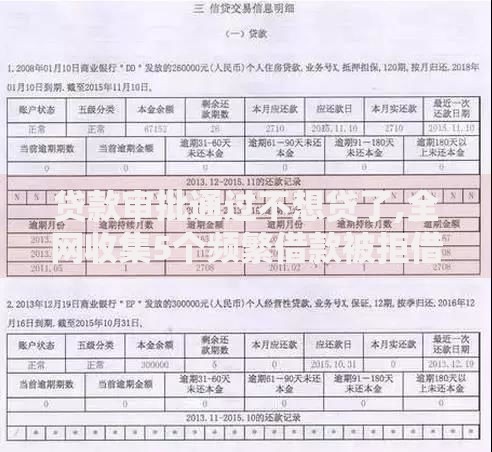 三 信贷交易信息明细
（一）贷款
1.2008年01月10日商业银行"DD"发放的260000元(人民币)个人住房贷款,业务号X,抵押担保,120期,按月归还,2018年
01月10日到期.截至2015年11月10日,
账户状态 五级分类 本金余额 剩余还款期数 本月应还款 应还款日 本月实还款 最近一次还款日期
正常 正常 67152 26 2710 2015.11.10 2710 2015.11.10
当前逾期期数 当前逾期金额 逾期31-60天未还本金 逾期61-90天未还本金 逾期91-180天未还本金 逾期180天以上未还本金
0 0 0 0 0 0
2013.12-2015.11的还款记录
贷款审批通过不想贷了,全
网收集5个频繁借款被拒借
逾期月份 逾期持续月数
2011.05 1 2708 2011.02 2 2708
2.2013年12月19日商业银行"EP"发放的300000元(人民币)个人经营性贷款,业务号X,保证,12期,按季归还,2016年12
月16日到期.截至2015年10月31日,
账户状态 五级分类 本金余额 剩余还款期数 本月应还款 应还款日 本月实还款 最近一次还款日期
正常 正常 300000 5 0 2015.10.31 0 2013.12.19
当前逾期期数 当前逾期金额 逾期31-60天未还本金 逾期61-90天未还本金 逾期91-180天未还本金 逾期180天以上未还本金
0 0 0 0 0 0
2013.11-2015.10的还款记录
/ * * * * * * * * * * * * * * * * * * * * * * *